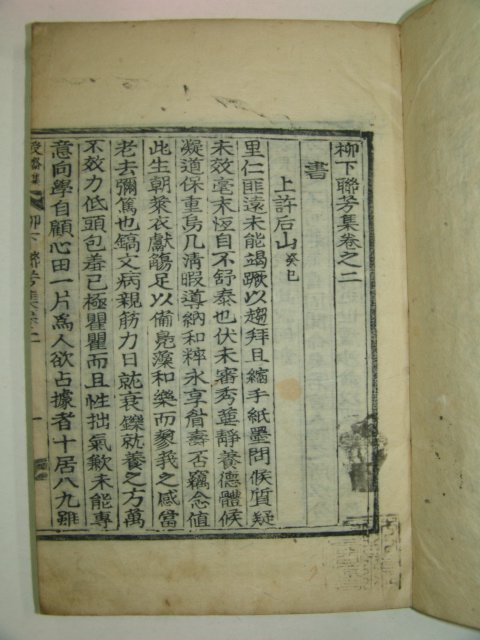 柳下聯芳集卷之二
書
上許后山 癸巳
里仁匪遠未能竭蹶以趨拜且縮手紙墨問候質疑
未效毫末恒自不舒泰也伏未審秀葽靜養德體候
凝道保重烏几清暇導納和粹永享耆壽否竊念値
此生朝萊衣獻觴足以備鳧藻和樂而蓼莪之感當
老去彌篤也鎬文病親筋力日就衰鑠就養之方萬
不效力低頭包羞已極瞿瞿而且性拙氣歉未能專
意向學自顧心田一片爲人欲占據者十居八九雖
柳下聯芳集卷二
一